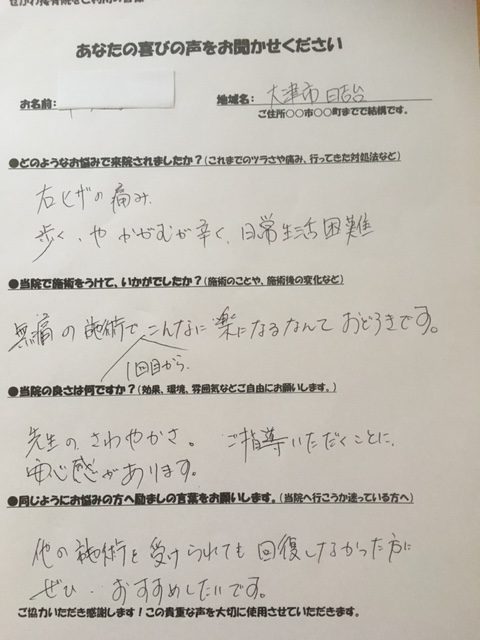 せがわ接骨院をご利用の皆様
あなたの喜びの声をお聞かせください
お名前:
地域名: 大津市 日吉台
ご住所○○市○○町までで結構です。
●どのようなお悩みで来院されましたか？(これまでのツラさや痛み、行ってきた対処法など)
右ヒザの痛み
歩く、や かがむが辛く、日常生活困難
●当院で施術をうけて、いかがでしたか？(施術のことや、施術後の変化など)
無痛の施術で、こんなに楽になるなんて おどろきです。
1回目から、
●当院の良さは何ですか？(効果、環境、雰囲気などご自由にお願いします。)
先生の さわやかさ。 ご指導いただくことに、
安心感があります。
●同じようにお悩みの方へ励ましの言葉をお願いします。(当院へ行こうか迷っている方へ)
他の施術を受けられても回復しなかった方に
ぜひ、おすすめしたいです。
ご協力いただき感謝します！この貴重な声を大切に使用させていただきます。